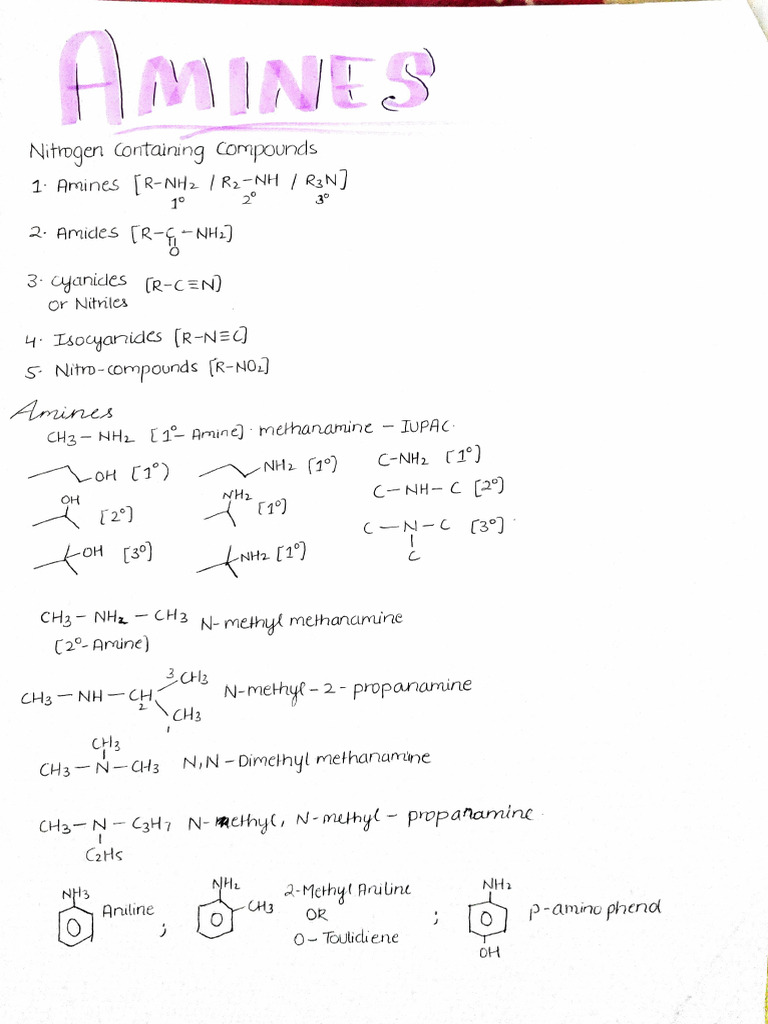 AMINES
Nitrogen Containing Compounds
1. Amines [R-NH2 / R2-NH / R3N]
1° 2° 3°
2. Amides [R-C-NH2]
O
3. Cyanides [R-C≡N]
or Nitriles
4. Isocyanides [R-N≡C]
5. Nitro-compounds [R-NO2]
Amines
CH3-NH2 [1°- Amine]. methanamine - IUPAC.
OH [1°) NH2 [1°) C-NH2 [1°]
OH [2°] NH2 [1°] C-NH-C [2°]
OH [3°] NH2 [1°] C-N-C [3°]
C
CH3-NH2-CH3 N-methyl methanamine
[2°-Amine)
3 CH3
CH3-NH-CH N-methyl-2-propanamine
2
CH3
1
CH3
CH3-N-CH3 N,N-Dimethyl methanamine
CH3-N-C3H7 N-methyl, N-methyl-propanamine.
C2H5
NH3 Aniline ;
NH2 CH3 2-Methyl Aniline
OR
O-Toulidiene ;
NH2 p-aminophenol
OH